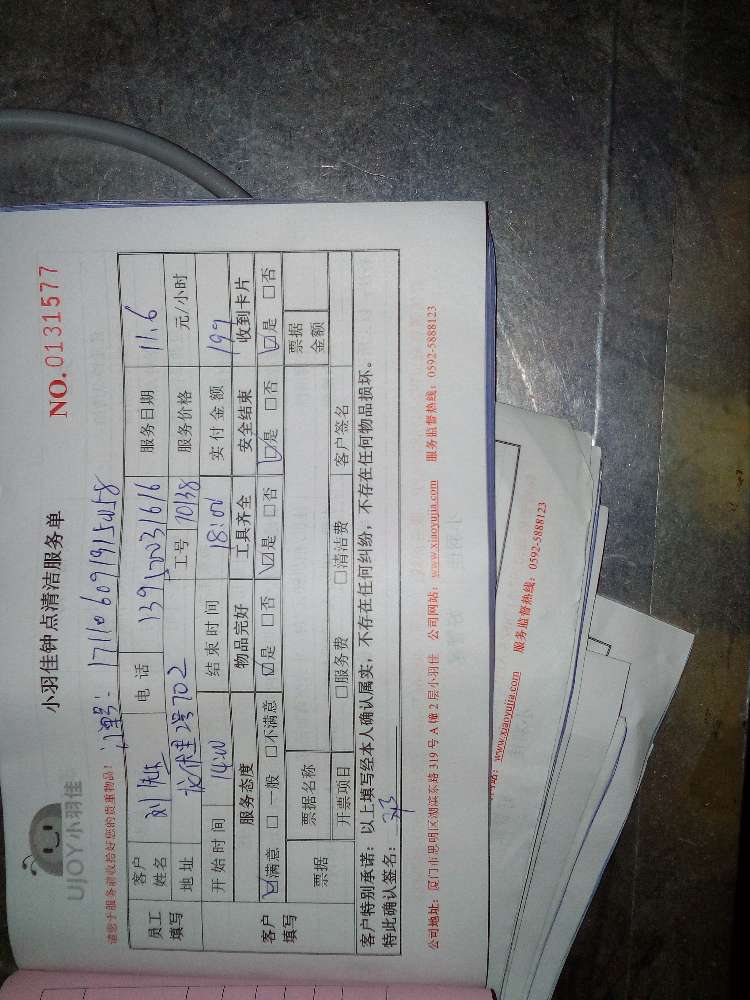 UJOY小羽佳
小羽佳钟点清洁服务单
NO. 0131577
请您于服务前收拾好您的贵重物品!
订单号: 17110609191504158
员工填写
客户姓名 刘先生 电话 13950031616 服务日期 11.6
地址 2号702 工号 70138 服务价格 元/小时
开始时间 14:00 结束时间 18:00 实付金额 199
客户填写
服务态度 物品完好 工具齐全 安全结束 收到卡片
☑满意 □一般 □不满意 ☑是 □否 ☑是 □否 ☑是 □否 ☑是 □否
票据 票据名称 票据金额
开票项目 □服务费 □清洁费 客户签名
客户特别承诺: 以上填写经本人确认属实, 不存在任何纠纷, 不存在任何物品损坏。
特此确认签名:
公司地址: 厦门市思明区湖滨东路 319 号 A 幢 2 层小羽佳 公司网站: www.xiaoyujia.com 服务监督热线: 0592-5888123
www.xiaoyujia.com 服务监督热线: 0592-5888123